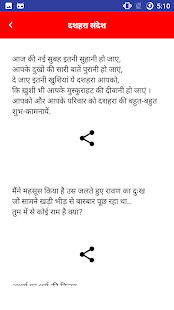 5:10
दशहरा संदेश
आज की नई सुबह इतनी सुहानी हो जाए,
आपके दुखों की सारी बातें पुरानी हो जाए,
दे जाए इतनी खुशियां ये दशहरा आपको,
कि ख़ुशी भी आपके मुस्कुराहट की दीवानी हो जाए ।
आपको और आपके परिवार को दशहरा की बहुत-बहुत
शुभ-कामनायें.
मैंने महसूस किया है उस जलते हुए रावण का दुःख
जो सामने खड़ी भीड से बारबार पूछ रहा था..
तुम में से कोई राम है क्या?